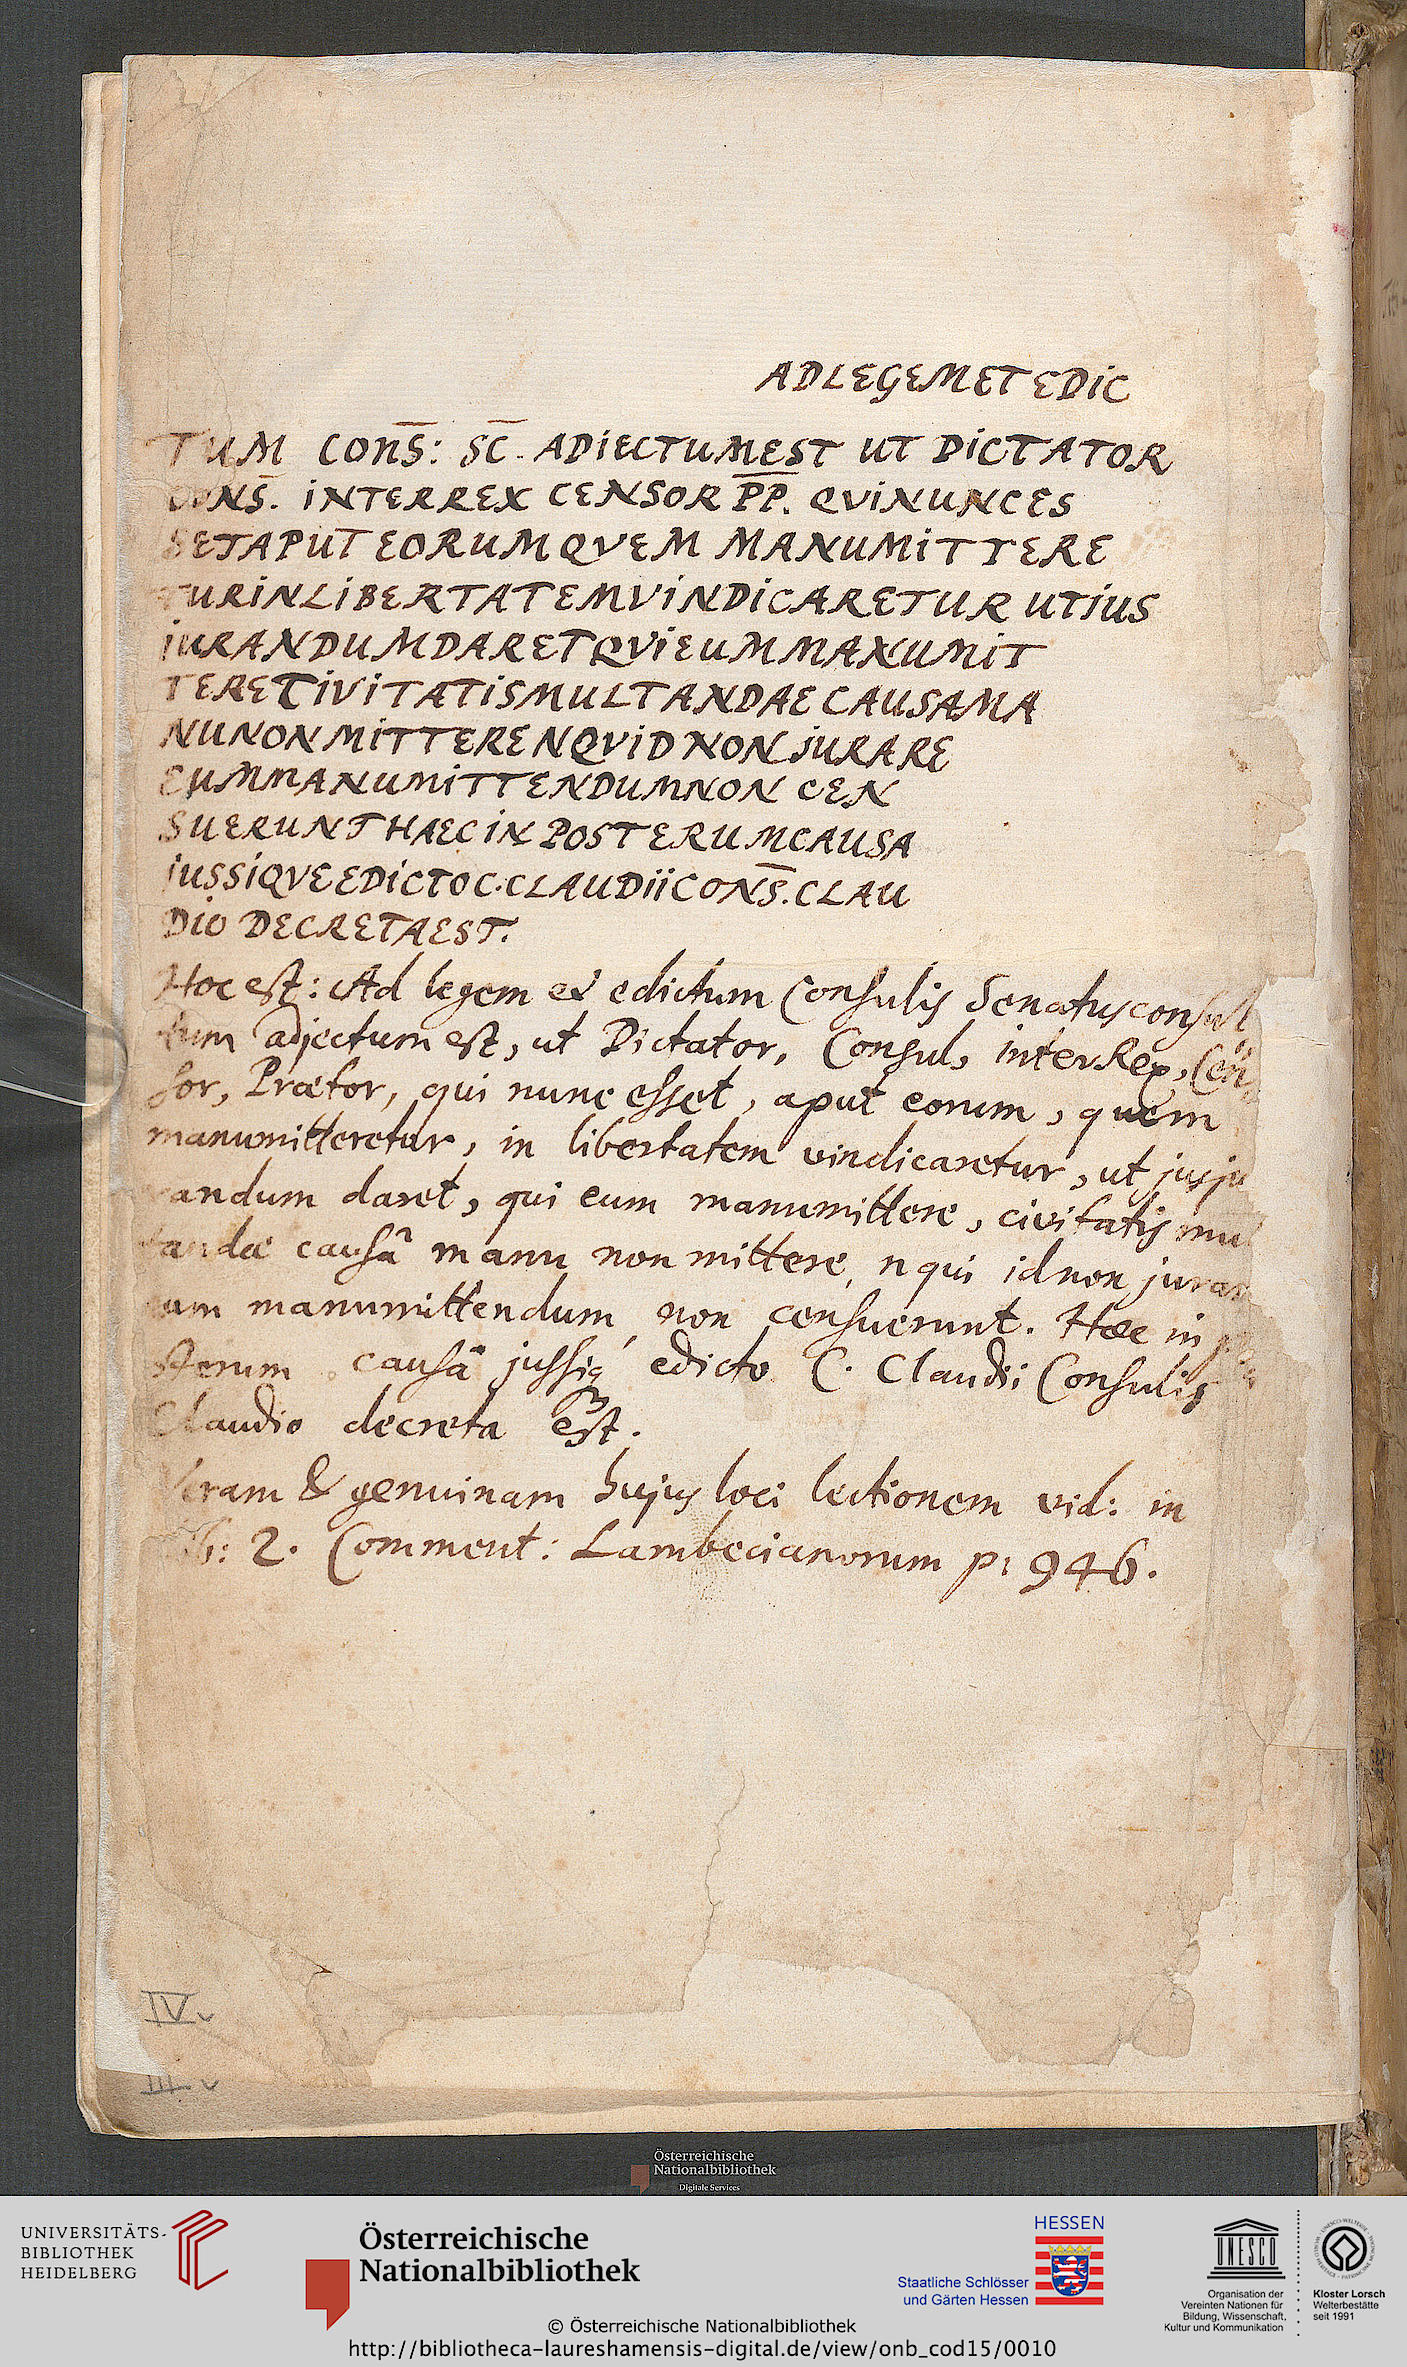 ADLEGEMET EDIC
TUM CONS: SC. ADIECTUMEST UT DICTATOR
CONS. INTERREX CENSOR PP. QVINUNCES
SETAPUT EORUMQVEM MANUMITTERE
TURINLIBERTATEMVINDICARETUR UTIUS
IURANDUMDARETQVIEUMMANUMIT
TERETIVITATISMULTANDAE CAUSAMA
NUNONMITTERENQVIDNONIURARE
EUMMANUMITTENDUMNON CEN
SUERUNTHAECINPOSTERUMCAUSA
IUSSIQVEEDICTOC.CLAUDIICONS.CLAU
DIO DECRETAEST.
Hoc est: Ad legem et edictum Consulis Senatusconsul
tum adjectum est, ut Dictator, Consul, interRex, Cen
sor, Prætor, qui nunc esset, aput eorum, quem
manumitteretur, in libertatem vindicaretur, ut jusju
randum daret, qui eum manumittere, civitatis mul
tandæ causâ manu non mittere, n qui id non jurar
eum manumittendum non censuerunt. Hæc in
sterum causâ jussiq́ edicto C. Claudii Consulis
Claudio decreta est.
Veram & genuinam hujus loci lectionem vid: in
lib: 2. Comment: Lambecianorum p: 946.
IV v
III v
Österreichische
Nationalbibliothek
Digitale Services
UNIVERSITÄTS-
BIBLIOTHEK
HEIDELBERG
Österreichische
Nationalbibliothek
HESSEN
Staatliche Schlösser
und Gärten Hessen
UNESCO
Organisation der
Vereinten Nationen für
Bildung, Wissenschaft,
Kultur und Kommunikation
Kloster Lorsch
Welterbestätte
seit 1991
© Österreichische Nationalbibliothek
http://bibliotheca-laureshamensis-digital.de/view/onb_cod15/0010